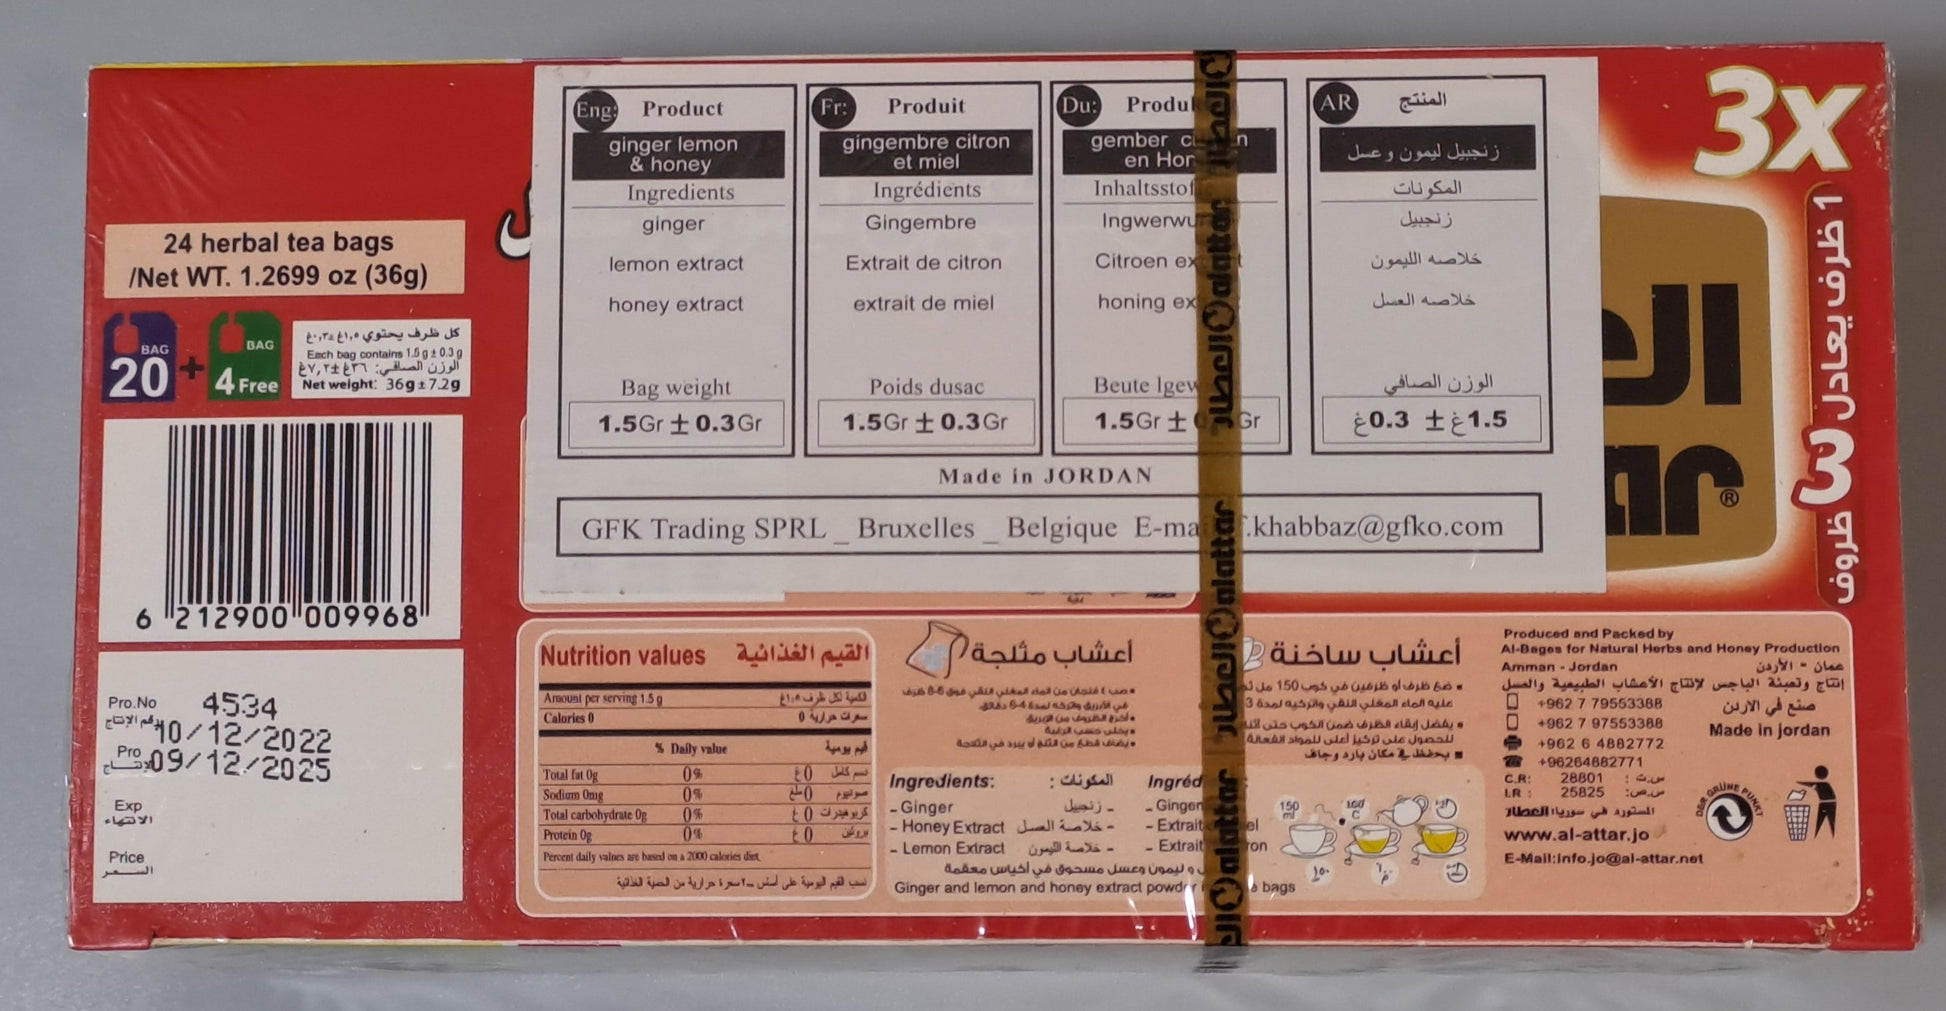 24 herbal tea bags
/Net WT. 1.2699 oz (36g)
BAG
20
+
BAG
4 Free
كل ظرف يحتوي ١,٥غ ±٠,٣غ
Each bag contains 1.5 g ± 0.3 g
الوزن الصافي: ٣٦غ ±٧,٢غ
Net weight: 36g ± 7.2g
6 212900 009968
Pro.No 4534
رقم الإنتاج
10/12/2022
Pro
09/12/2025
Exp
الانتهاء
Price
السعر
Eng: Product
ginger lemon
& honey
Ingredients
ginger
lemon extract
honey extract
Bag weight
1.5Gr ± 0.3Gr
Fr: Produit
gingembre citron
et miel
Ingrédients
Gingembre
Extrait de citron
extrait de miel
Poids dusac
1.5Gr ± 0.3Gr
Du:
gember
en
Citroen
honing
Beute
1.5Gr ± Gr
AR المنتج
زنجبيل ليمون و عسل
المكونات
زنجبيل
خلاصه الليمون
خلاصه العسل
الوزن الصافي
1.5غ ± 0.3غ
Made in JORDAN
GFK Trading SPRL _ Bruxelles _ Belgique .khabbaz@gfko.com
العطار alattar
العطار alattar
العطار alattar
3x
1 ظرف يعادل ٣ ظروف
®
Nutrition values القيم الغذائية
Amount per serving 1.5 g الكمية لكل ظرف ١,٥غ
Calories 0 سعرات حرارية 0
% Daily value قيم يومية
Total fat 0g 0% دسم كامل 0 غ
Sodium 0mg 0% صوديوم 0 ملغ
Total carbohydrate 0g 0% كربوهيدرات 0 غ
Protein 0g 0% بروتين 0 غ
Percent daily values are based on a 2000 calories diet.
أعشاب مثلجة
أعشاب ساخنة
- ضع ظرف أو ظرفين في كوب 150 مل
عليه الماء المغلي النقي واتركيه لمدة 3
- يفضل إبقاء الظرف ضمن الكوب حتى
للحصول على تركيز أعلى للمواد الفعالة
- يحفظ في مكان بارد وجاف
Ingredients: المكونات :
- Ginger زنجبيل -
- Honey Extract خلاصة العسل -
- Lemon Extract خلاصة الليمون -
- Extrait
- Extrait
و ليمون وعسل مسحوق في أكياس معقمة
Ginger and lemon and honey extract powder bags
150
ml
100
C
Produced and Packed by
Al-Bages for Natural Herbs and Honey Production
Amman - Jordan عمان - الأردن
إنتاج وتعبئة الباجس لإنتاج الأعشاب الطبيعية والعسل
+962 7 79553388 صنع في الاردن
+962 7 97553388 Made in jordan
+962 6 4882772
+96264882771
C.R: 28801 س.ت :
I.R : 25825 س.ص:
المستورد في سوريا: العطار
www.al-attar.jo
E-Mail:info.jo@al-attar.net
DER GRÜNE PUNKT